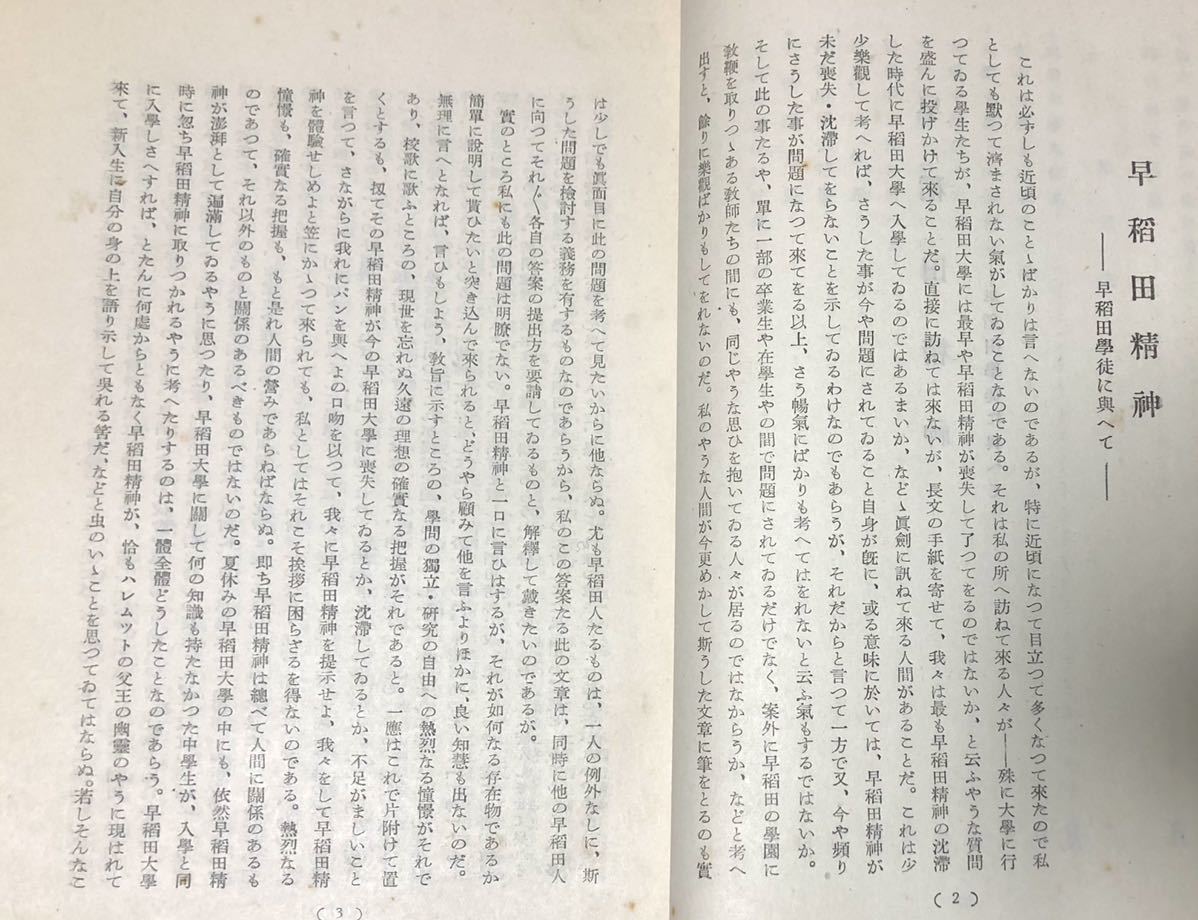 早稻田精神
――早稻田學徒に與へて――
これは必ずしも近頃のことゝばかりは言へないのであるが、特に近頃になつて目立つて多くなつて來たので私
としても默つて濟まされない氣がしてゐることなのである。それは私の所へ訪ねて來る人々が――殊に大學に行
つてゐる學生たちが、早稻田大學には最早や早稻田精神が喪失して了つてをるのではないか、と云ふやうな質問
を盛んに投げかけて來ることだ。直接に訪ねては來ないが、長文の手紙を寄せて、我々は最も早稻田精神の沈滯
した時代に早稻田大學へ入學してゐるのではあるまいか、などゝ眞劍に訊ねて來る人間があることだ。これは少
少樂觀して考へれば、さうした事が今や問題にされてゐること自身が旣に、或る意味に於いては、早稻田精神が
未だ喪失・沈滯してをらないことを示してゐるわけなのでもあらうが、それだからと言つて一方で又、今や頻り
にさうした事が問題になつて來てをる以上、さう暢氣にばかりも考へてはをれないと云ふ氣もするではないか。
そして此の事たるや、單に一部の卒業生や在學生やの間で問題にされてゐるだけでなく、案外に早稻田の學園に
敎鞭を取りつゝある敎師たちの間にも、同じやうな思ひを抱いてゐる人々が居るのではなからうか、などと考へ
出すと、餘りに樂觀ばかりもしてをれないのだ。私のやうな人間が今更めかして斯うした文章に筆をとるのも實
(2)
は少しでも眞面目に此の問題を考へて見たいからに他ならぬ。尤も早稻田人たるものは、一人の例外なしに、斯
うした問題を檢討する義務を有するものなのであらうから、私のこの答案たる此の文章は、同時に他の早稻田人
に向つてそれ〴〵各自の答案の提出方を要請してゐるものと、解釋して戴きたいのであるが。
實のところ私にも此の問題は明瞭でない。早稻田精神と一口に言ひはするが、それが如何なる存在物であるか
簡單に說明して貰ひたいと突き込んで來られると、どうやら顧みて他を言ふよりほかに、良い知慧も出ないのだ。
無理に言へとなれば、言ひもしよう、敎旨に示すところの、學問の獨立・硏究の自由への熱烈なる憧憬がそれで
あり、校歌に歌ふところの、現世を忘れぬ久遠の理想の確實なる把握がそれであると。一應はこれで片附けて置
くとするも、扨てその早稻田精神が今の早稻田大學に喪失してゐるとか、沈滯してゐるとか、不足がましいこと
を言つて、さながらに我れにパンを與へよの口吻を以つて、我々に早稻田精神を提示せよ、我々をして早稻田精
神を體驗せしめよと笠にかゝつて來られても、私としてはそれこそ挨拶に困らざるを得ないのである。熱烈なる
憧憬も、確實なる把握も、もと是れ人間の營みであらねばならぬ。卽ち早稻田精神は總べて人間に關係のあるも
のであつて、それ以外のものと關係のあるべきものではないのだ。夏休みの早稻田大學の中にも、依然早稻田精
神が澎湃として遍滿してゐるやうに思つたり、早稻田大學に關して何の知識も持たなかつた中學生が、入學と同
時に忽ち早稻田精神に取りつかれるやうに考へたりするのは、一體全體どうしたことなのであらう。早稻田大學
に入學しさへすれば、とたんに何處からともなく早稻田精神が、恰もハレムツトの父王の幽靈のやうに現はれて
來て、新入生に自分の身の上を語り示して吳れる筈だ、などと虫のいゝことを思つてゐてはならぬ。若しそんなこ
(3)